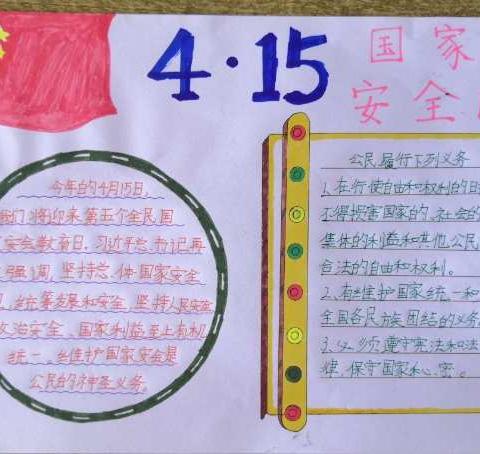 4·15
国家
安全
今年的4月15日,
我们将迎来第五个全民国
安全教育日。习近平总书记再
强调,坚持总体国家安全
,统筹发展和安全,坚持人民安全
政治安全、国家利益至上有机
统一、维护国家安全是
公民的神圣义务。
公民履行下列义务
1、在行使自由和权利的时
不得损害国家的、社会的
集体的利益和其他公民
合法的自由和权利。
2、有维护国家统一和
全国各民族团结的义务
3、必须遵守宪法和法
律、保守国家秘密。